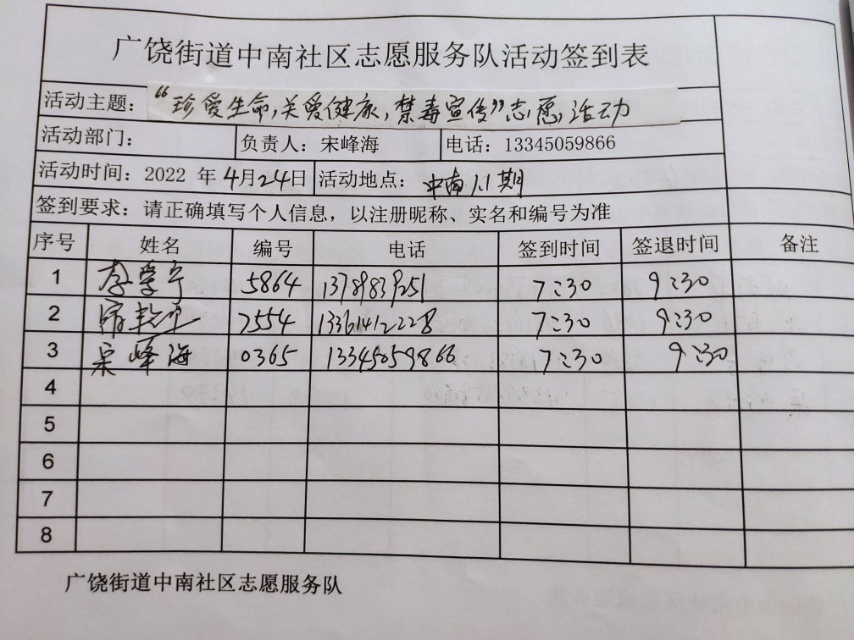 广饶街道中南社区志愿服务队活动签到表
活动主题：“珍爱生命,关爱健康,禁毒宣传”志愿活动
活动部门： 负责人：宋峰海 电话：13345059866
活动时间：2022 年4月24日 活动地点：中南1.1期
签到要求：请正确填写个人信息，以注册昵称、实名和编号为准
序号 姓名 编号 电话 签到时间 签退时间 备注
1 5864 7:30 9:30
2 7554 13361412228 7:30 9:30
3 宋峰海 0365 13345059866 7:30 9:30
4
5
6
7
8
广饶街道中南社区志愿服务队